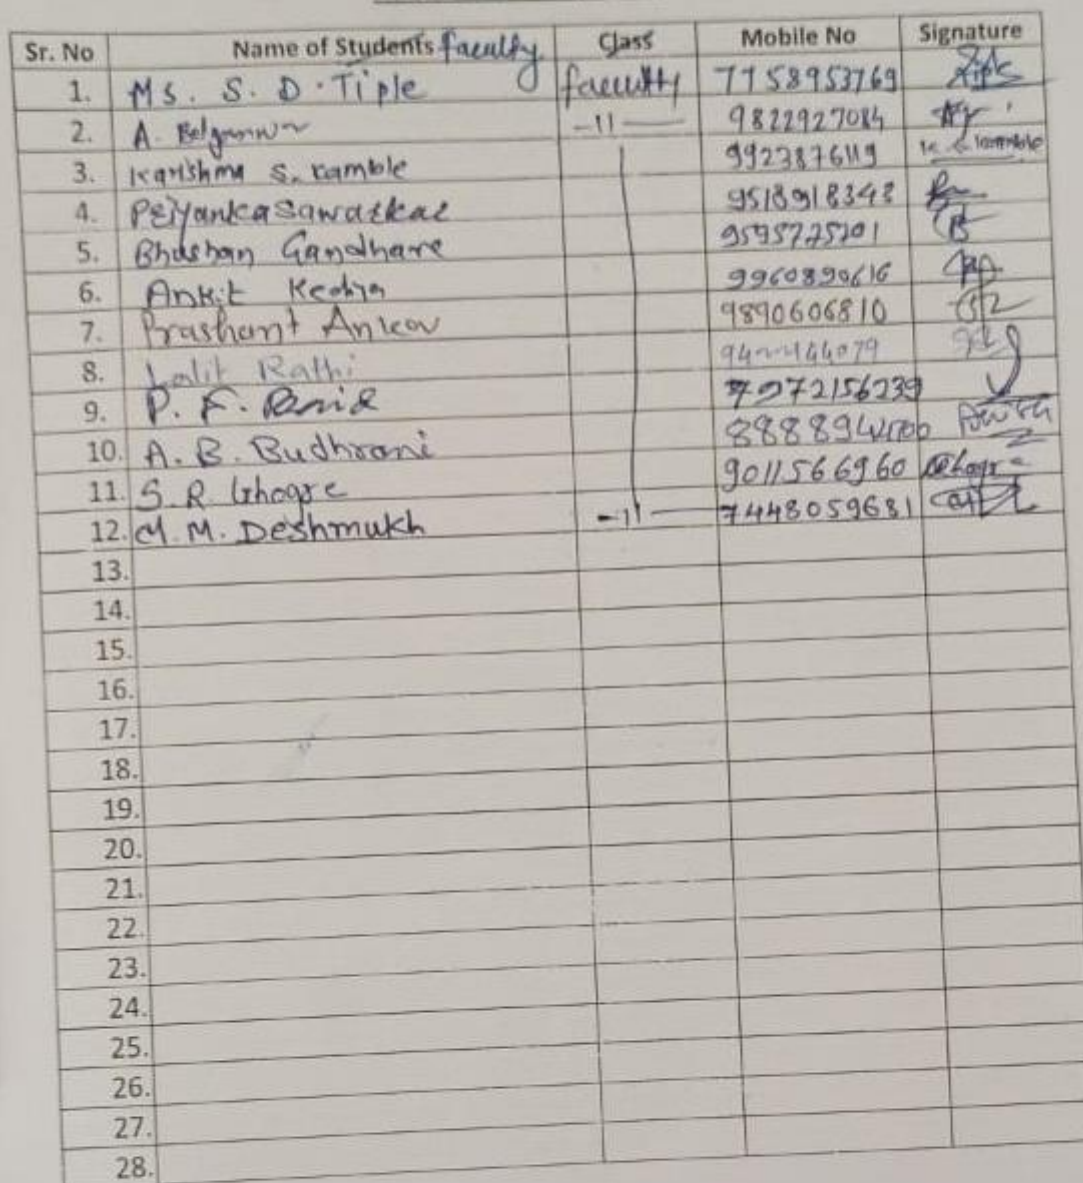 Sr. No Name of Students faculty Class Mobile No Signature
1. Ms. S. D. Tiple faculty 7758953769
2. A. -11- 9822927084
3. Karishma S. Kamble 9923876119 K S Kamble
4. Priyanka Sawarkar 9518918348
5. Bhushan Gandhare 9595725201
6. Ankit Kediya 9960890616
7. Prashant Ankar 9890606810
8. Lalit Rathi
9. P. F. 7972156239
10. A. B. Budhrani
11. S. R. Ghogre 9011566960
12. M. M. Deshmukh -11- 7448059681
13.
14.
15.
16.
17.
18.
19.
20.
21.
22.
23.
24.
25.
26.
27.
28.